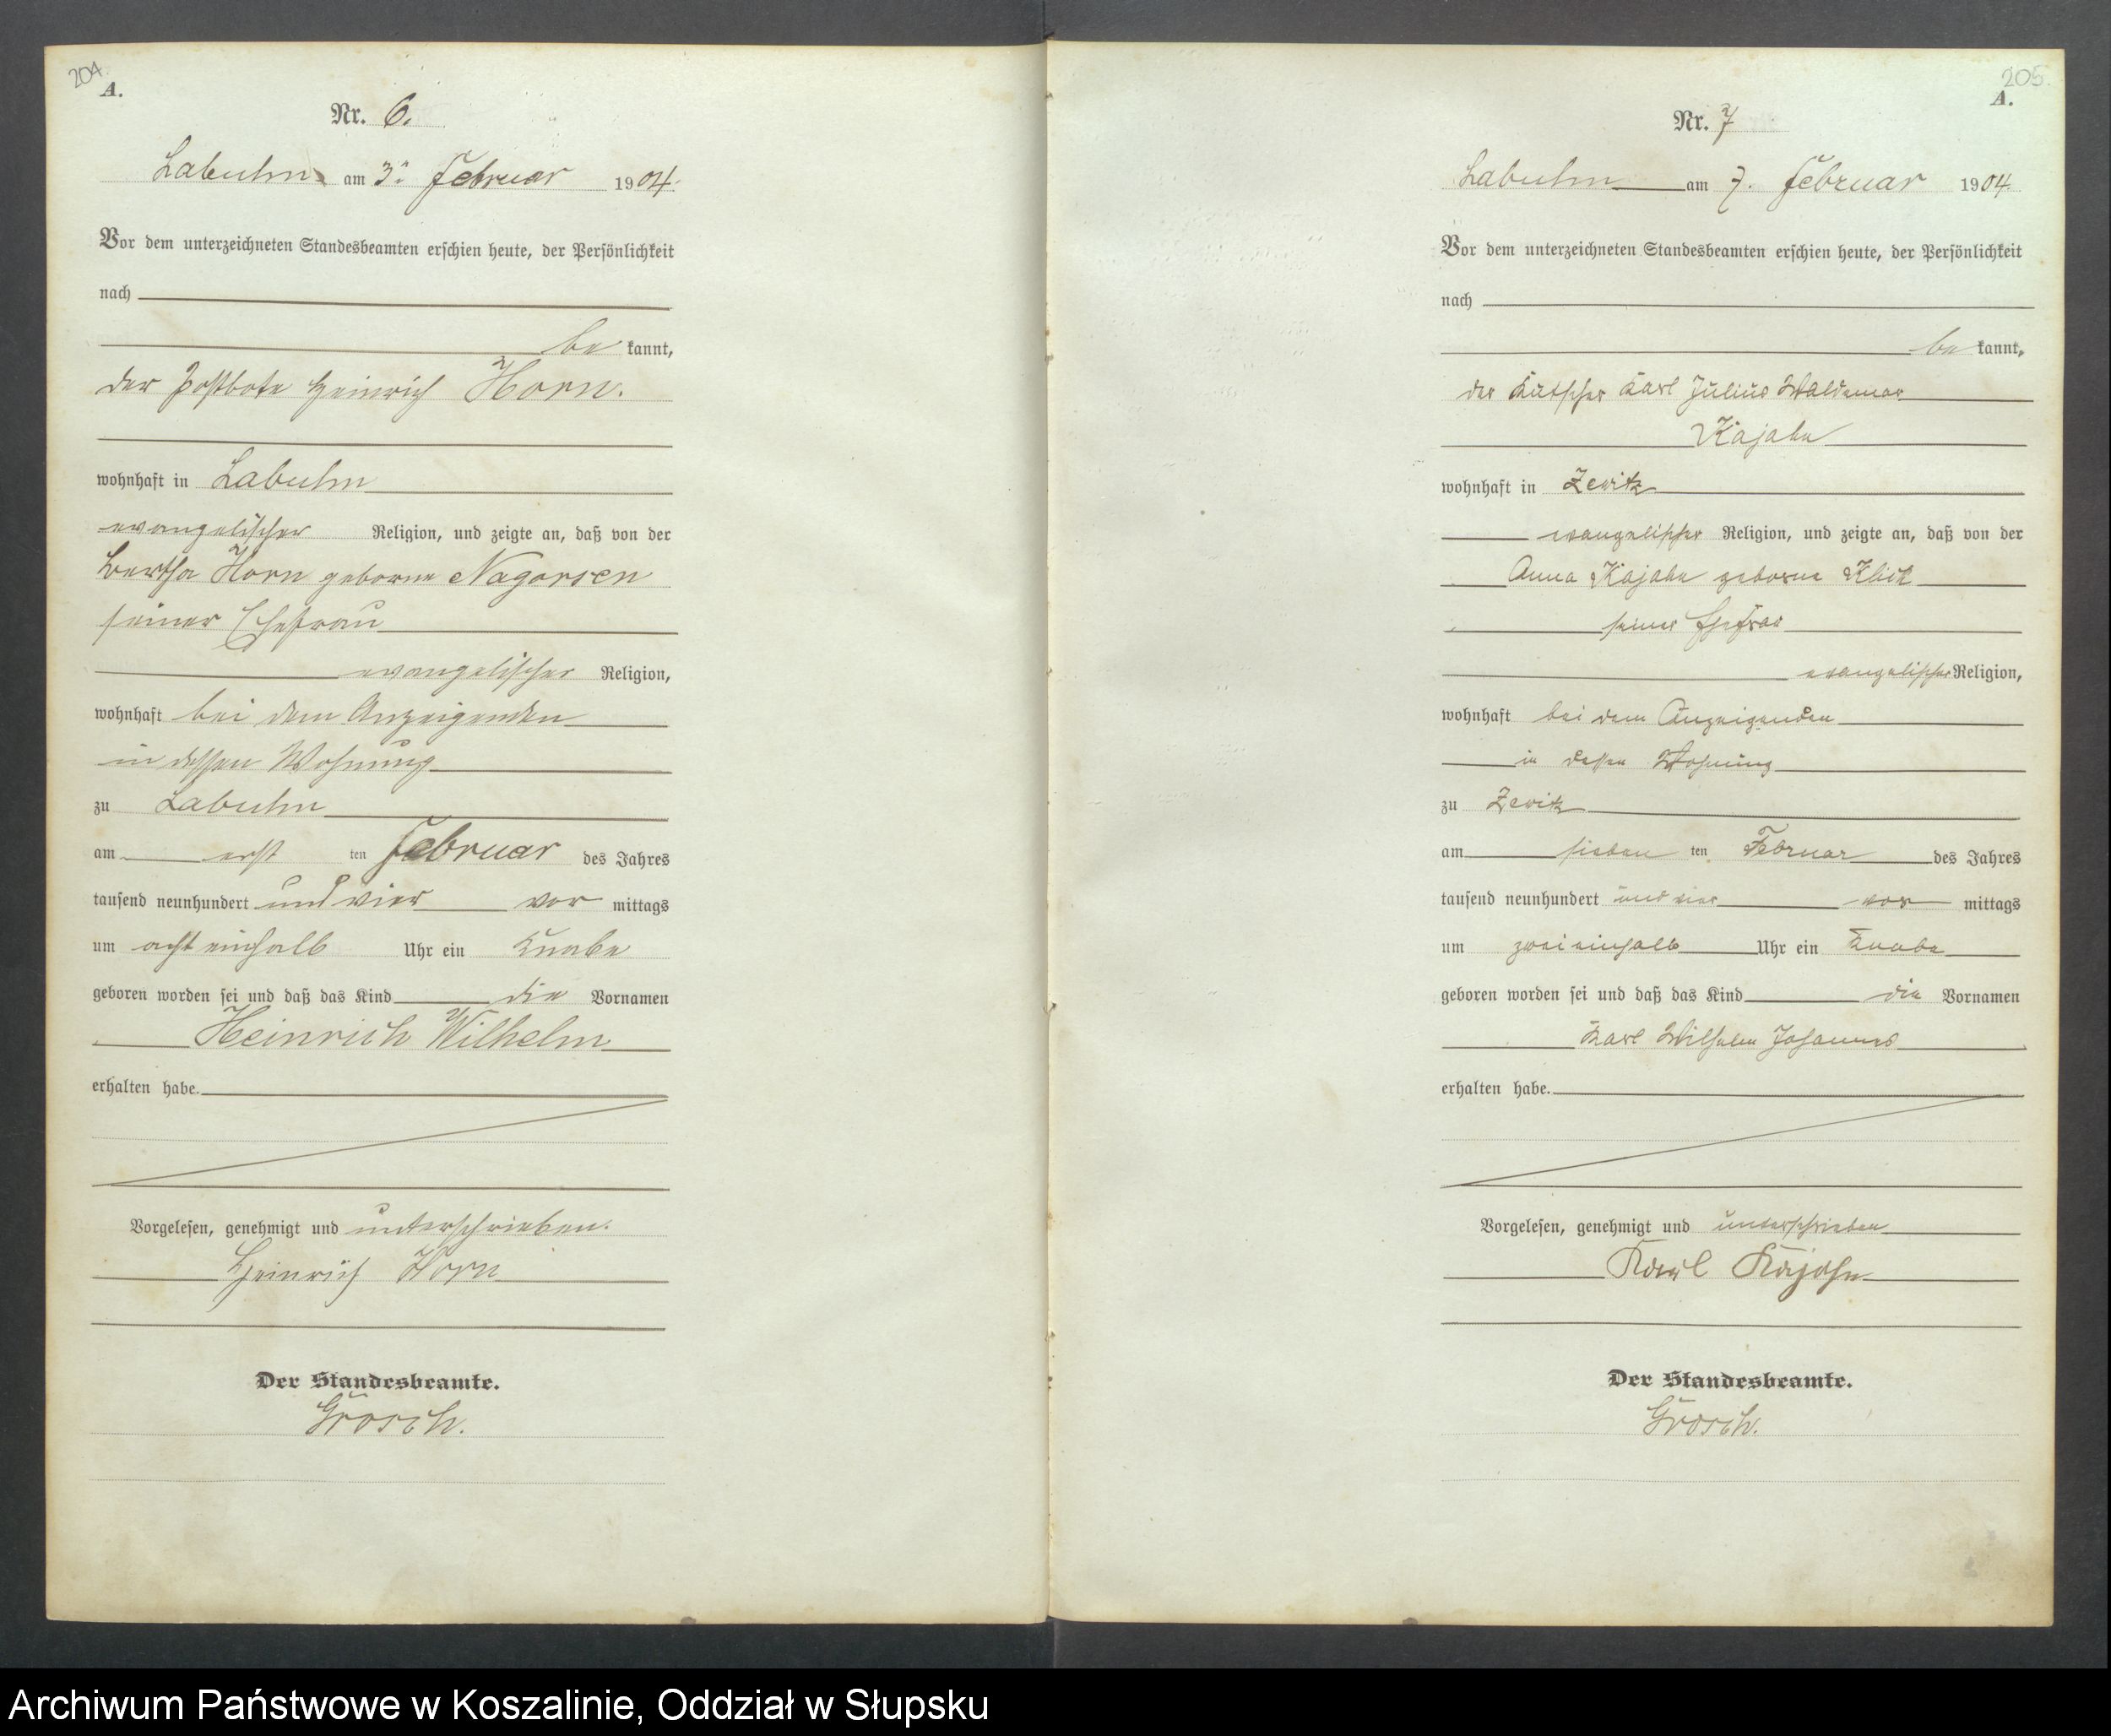 204
A.
Nr. 6.
Labuhn am 3. Februar 1904.
Vor dem unterzeichneten Standesbeamten erschien heute, der Persönlichkeit
nach
be kannt,
der Postbote Heinrich Horn.
wohnhaft in Labuhn
evangelischer Religion, und zeigte an, daß von der
Bertha Horn geborne Nagorsen
seiner Ehefrau
evangelischer Religion,
wohnhaft bei dem Anzeigenden
in dessen Wohnung
zu Labuhn
am erst ten Februar des Jahres
tausend neunhundert und vier vor mittags
um acht einhalb Uhr ein Knabe
geboren worden sei und daß das Kind die Vornamen
Heinrich Wilhelm
erhalten habe.
Vorgelesen, genehmigt und unterschrieben.
Heinrich Horn
Der Standesbeamte.
Grosch.
205.
A.
Nr. 7
Labuhn am 7. Februar 1904.
Vor dem unterzeichneten Standesbeamten erschien heute, der Persönlichkeit
nach
be kannt,
der Kutscher Karl Julius Waldemar
wohnhaft in Zewitz
evangelischer Religion, und zeigte an, daß von der
Anna geborne
seiner Ehefrau
evangelischer Religion,
wohnhaft bei dem Anzeigenden
in dessen Wohnung
zu Zewitz
am sieben ten Februar des Jahres
tausend neunhundert und vier vor mittags
um zwei einhalb Uhr ein Knabe
geboren worden sei und daß das Kind die Vornamen
Karl Wilhelm Johannes
erhalten habe.
Vorgelesen, genehmigt und unterschrieben
Karl
Der Standesbeamte.
Grosch.
Archiwum Państwowe w Koszalinie, Oddział w Słupsku